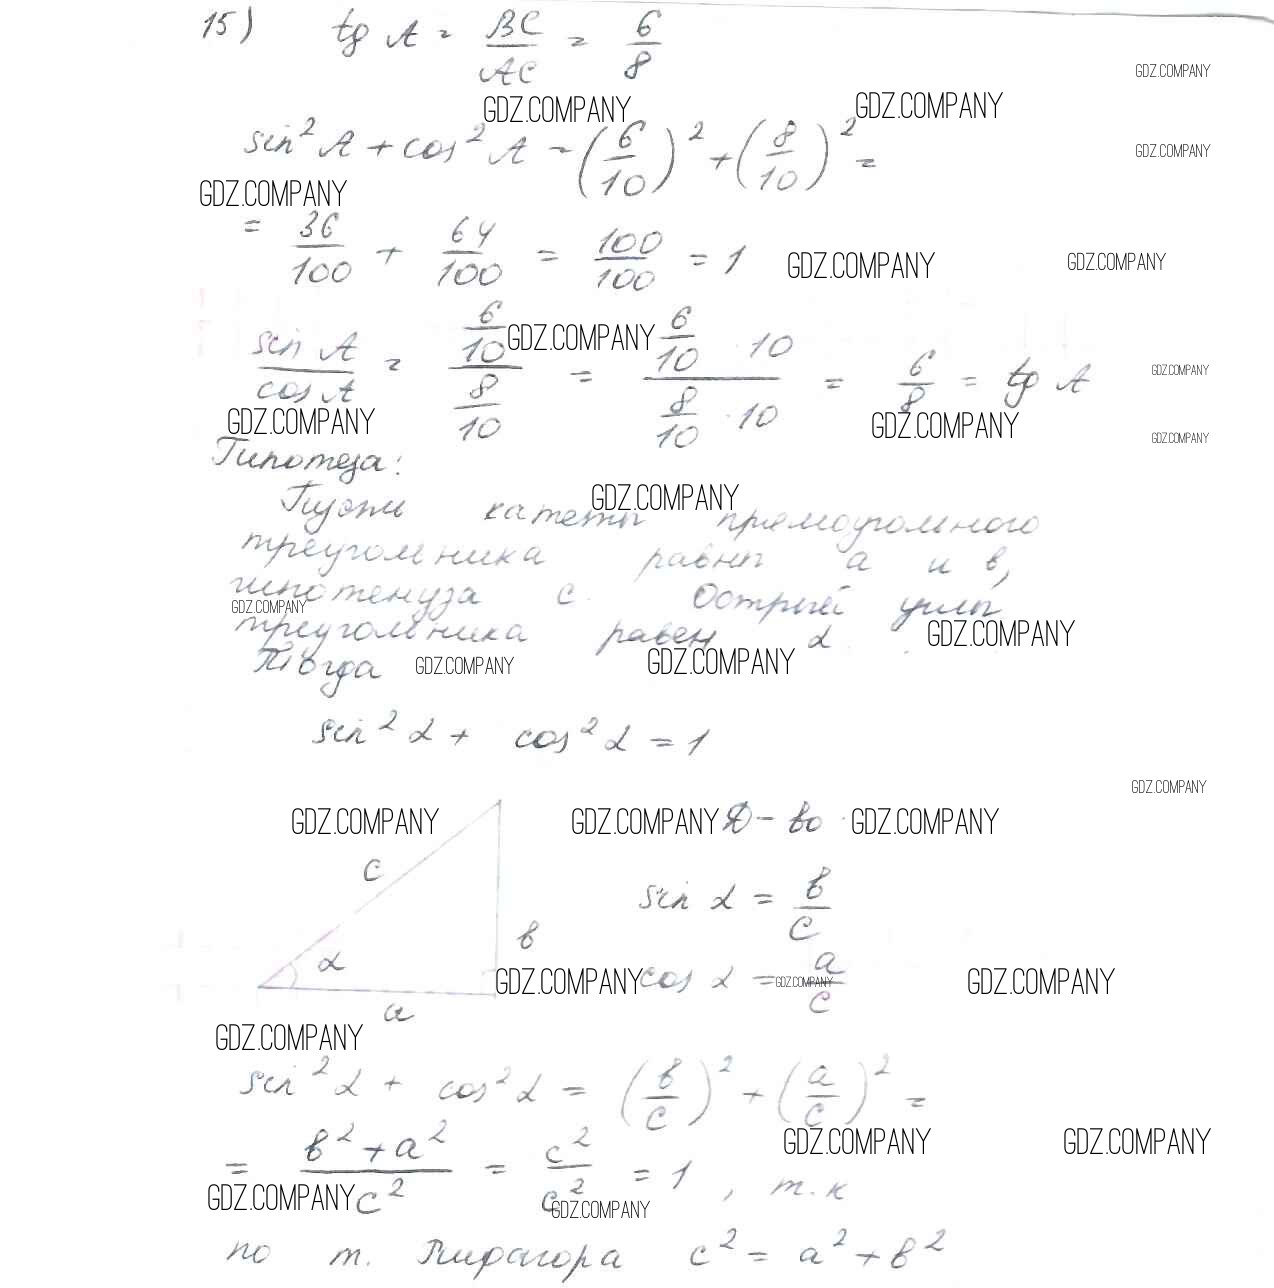 15) tg A = BC/AC = 6/8
GDZ.COMPANY
GDZ.COMPANY GDZ.COMPANY
sin² A + cos² A = (6/10)² + (8/10)² =
GDZ.COMPANY
GDZ.COMPANY
= 36/100 + 64/100 = 100/100 = 1
GDZ.COMPANY GDZ.COMPANY
GDZ.COMPANY
sin A / cos A = (6/10)/(8/10) = (6/10 · 10)/(8/10 · 10) = 6/8 = tg A
GDZ.COMPANY
GDZ.COMPANY GDZ.COMPANY
GDZ.COMPANY
Гипотеза:
GDZ.COMPANY
Пусть катеты прямоугольного
треугольника равны a и в,
гипотенуза c. Острый углы
GDZ.COMPANY
треугольника равен α.
GDZ.COMPANY
Тогда
GDZ.COMPANY GDZ.COMPANY
sin² α + cos² α = 1
GDZ.COMPANY
GDZ.COMPANY GDZ.COMPANY Д-во GDZ.COMPANY
c
sin α = в/c
в
α
GDZ.COMPANY cos α = a/c GDZ.COMPANY
GDZ.COMPANY
a
GDZ.COMPANY
sin² α + cos² α = (в/c)² + (a/c)² =
GDZ.COMPANY GDZ.COMPANY
= (в² + a²)/c² = c²/c² = 1, т.к
GDZ.COMPANY GDZ.COMPANY
по т. Пифагора c² = a² + в²